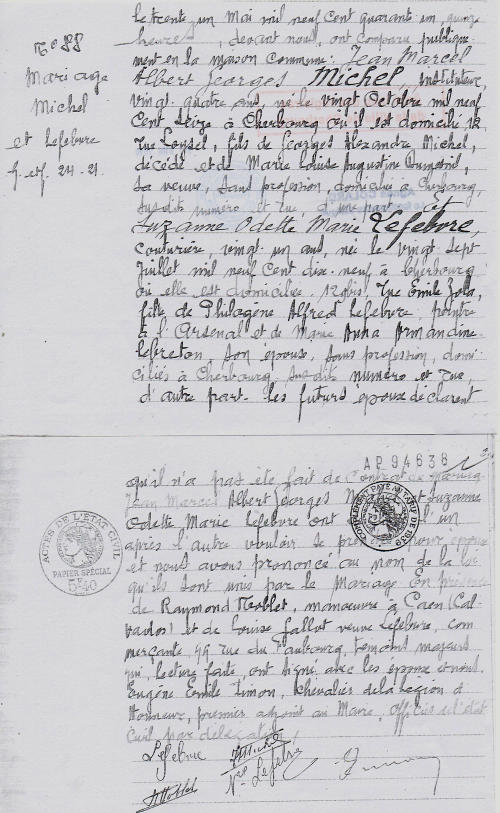 N° 88
Mariage
Michel
et Lefebvre
Le trente un Mai mil neuf cent quarante un, quinze
heures, devant nous, ont comparu publique
ment en la maison commune: Jean Marcel
Albert Georges Michel, instituteur,
vingt quatre ans, né le vingt Octobre mil neuf
cent seize à Cherbourg où il est domicilié 12
rue Loysel, fils de Georges Alexandre Michel,
décédé et de Marie Louise Augustine Dumesnil,
sa veuve, sans profession, domiciliée à Cherbourg,
susdits numéro et rue, d'une part, et
Suzanne Odette Marie Lefebvre,
couturière, vingt un ans, née le vingt sept
Juillet mil neuf cent dix neuf à Cherbourg
où elle est domiciliée, 12 bis, rue Emile Zola,
fille de Philogène Alfred Lefebvre, peintre
à l'Arsenal et de Marie Anna Armandine
Lebreton, son épouse, sans profession, domi-
ciliés à Cherbourg susdits numéro et rue,
d'autre part. Les futurs époux déclarent
AP 94638
qu'il n'a pas été fait de Contrat de Mariage
Jean Marcel Albert Georges Michel et Suzanne
Odette Marie Lefebvre ont l'un
après l'autre vouloir se prendre pour époux
et nous avons prononcé au nom de la loi
qu'ils sont unis par le Mariage en présence
de Raymond Noblet, manœuvre à Caen (Cal-
vados) et de Louise Fallot veuve Lefebvre, com
merçante 79 rue du Faubourg, témoins majeurs
qui, lecture faite, ont signé avec les époux et nous.
Eugène Emile Simon, Chevalier de la Légion d'
Honneur, premier adjoint au Maire, Officier d'état
Civil par délégation
ACTES DE L'ÉTAT CIVIL
PAPIER SPÉCIAL
5F40
COMPLÉMENT PAYÉ AU TARIF DE 1939
Lefebvre
JMichel
Vve Lefebvre